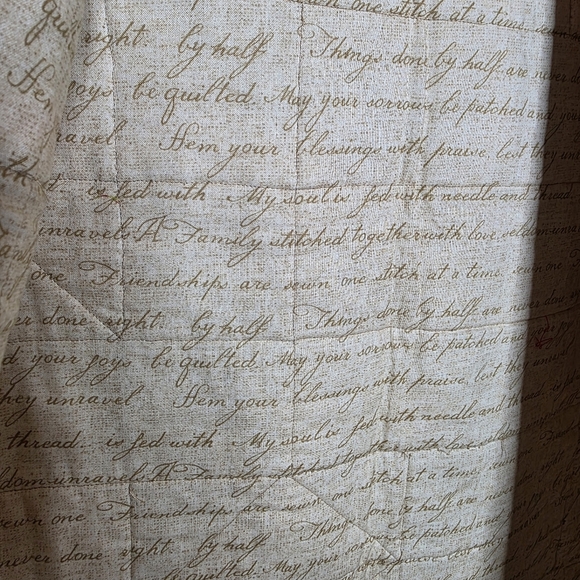 sewn one stitch at a time. sewn
quil right. by half Things done by half are never
Hem joys be quilted. May your sorrows be patched and your
ravel Hem your blessings with praise, lest they un
th t. is fed with My soul is fed with needle and thread.
unravels. A Family stitched together with love, seldom unra
one Friendships are sewn one stitch at a time. sewn one
er done right. by half Things done by half are never don
d your joys be quilted. May your sorrows be patched and your
hey unravel Hem your blessings with praise, lest they unrav
thread. is fed with My soul is fed with needle and thread. is
ldom unravels. A Family stitched together with love seldom
sewn one Friendships are sewn one stitch at a time. sewn
never done right. by half Things done by half are never
be quilted. May your sorrows be patched and
with praise, lest they